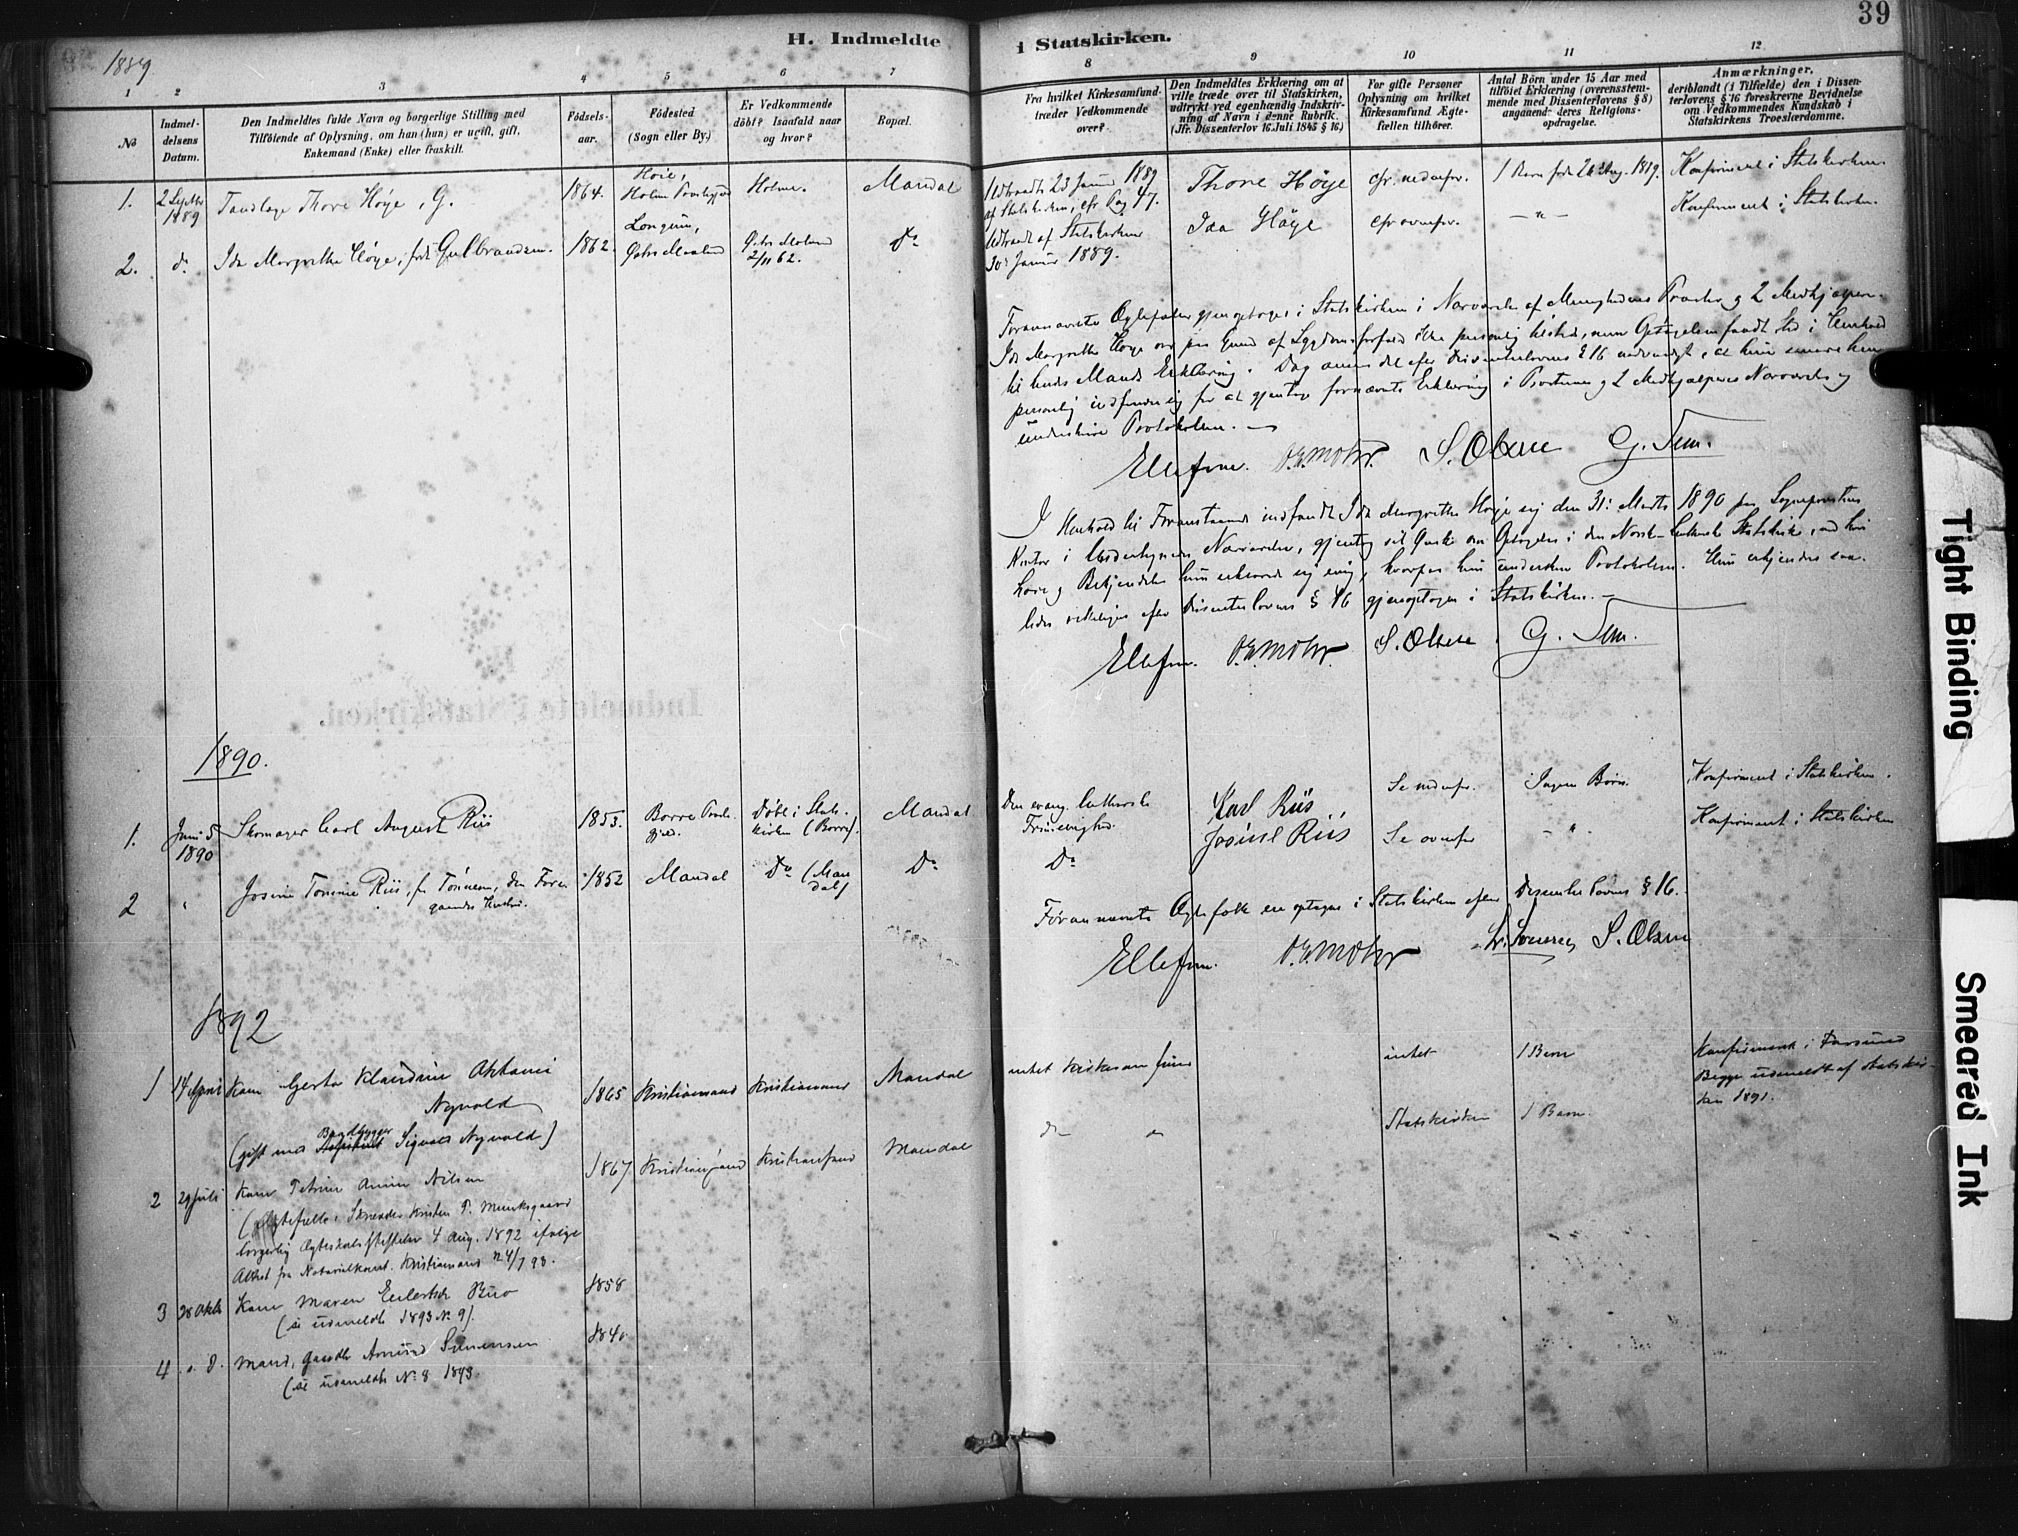 39
H. Indmeldte
i Statskirken.
1889
1 2 3 4 5 6 7
8 9 10 11 12
No
Indmel-
delsens
Datum.
Den Indmeldtes fulde Navn og borgerlige Stilling med
Tilföiende af Oplysning, om han (hun) er ugift, gift,
Enkemand (Enke) eller fraskilt.
Födsels-
aar.
Födested
(Sogn eller By.)
Er Vedkommende
döbt? Isaafald naar
og hvor?
Bopæl.
Fra hvilket Kirkesamfund
træder Vedkommende
over?
Den Indmeldtes Erklæring om at
ville træde over til Statskirken,
udtrykt ved egenhændig Indskriv-
ning af Navn i denne Rubrik.
(Jfr. Dissenterlov 16 Juli 1845 § 16.)
For gifte Personer
Oplysning om hvilket
Kirkesamfund Ægte-
fællen tilhører.
Antal Börn under 15 Aar med
tilföiet Erklæring (overensstem-
mende med Dissenterlovens § 8)
angaaende deres Religions-
opdragelse.
Anmærkninger,
deriblandt (i Tilfælde) den i Dissen-
terlovens § 16 foreskrevne Bevidnelse
om Vedkommendes Kundskab i
Statskirkens Troeslærdomme.
1. 2 Septbr 1889 Tandlæge Thore Høye, G. 1864. Høie, Holme Præstegjeld Holme. Mandal
Udtraadt 23 Januar 1889
af Statskirken, cfr Pag 47.
Thore Høye cfr. nedenfor. 1 Barn født 26 Aug. 1889. Konfirmeret i Statskirken
2. d. Ida Margrethe Høye, født Gulbrandsen. 1862. Longum, Østre Moland Østre Moland 2/11 62. Do
Udtraadt af Statskirken
30 Januar 1889.
Ida Høye cfr ovenfor. — " — Konfirmeret i Statskirken.
Forannævnte Ægtefolk gjenoptoges i Statskirken i Nærværelse af Menighedens Præster og 2 Medhjælpere.
Ida Margrethe Høye var paa Grund af Sygdomsforfald ikke personlig tilstede, men Optagelsen fandt Sted i Henhold
til hendes Mands Erklæring. Dog ansees det efter Dissenterlovens § 16 nødvendigt, at hun senere hen
personlig indfinder sig for at gjentage fornævnte Erklæring i Præsternes og 2 Medhjælperes Nærværelse og
underskrive Protokollen. —
Ellefsen. O.E. Mohr. S. Olsen G. Sem.
I Henhold til Foranstaaende indfandt Ida Margrethe Høye sig den 31: Marts 1890 paa Sognepræstens
Kontor i Undertegnedes Nærværelse, gjentog sit Ønske om Optagelse i den Norsk-lutherske Statskirke, med hvis
Lære og Bekjendelse hun erklærede sig enig, hvorpaa hun underskrev Protokollen. Hun erkjendes saa-
ledes virkeligen efter Dissenterlovens § 16 gjenoptagen i Statskirken. —
Ellefsen. O.E. Mohr. S. Olsen G. Sem.
1890.
1. Juni 5 1890 Skomager Carl August Riis 1853. Borre Præste-
gjeld. Døbt i Stats-
kirken (Borre). Mandal
Den evang. lutherske
Frimenighed.
Karl Riis Se nedenfor. Ingen Børn. Konfirmeret i Statskirken.
2 " Josine Tomine Riis, f. Tønnesen, den Fore-
gaaendes Hustru. 1852 Mandal Do (Man
dal) Do
Do Josine Riis Se ovenfor - " - Konfirmeret i Statskirken
Forannævnte Ægtefolk ere optagne i Statskirken efter Dissenterlovens § 16.
Ellefsen. O.E. Mohr S. Olsen
1892
1 14 April Kone Gerta Klaudine Oktavie
Nyvold 1865 Kristiansand Kristiansand Mandal
(gift med Baadbygger Sigvald Nyvold)
intet Kirkesamfund intet 1 Barn Konfirmeret i Farsund
Begge udmeldt af Statskir-
ken 1891.
2 29 juli Kone Petrine Amine Nilsen 1867 Kristiansand Kristiansand Mandal
do do Statskirken 1 Barn.
(Ægtefælle: Skrædder Kristen P. Munksgaard
borgerlig Ægteskabsstiftelse 4 Aug. 1892 ifølge
Attest fra Notarialkont. Kristiansand 24/1 93.
3 28 Oktb Kone Maren Eilertsdr Buo 1858
(se udmeldte 1893 No. 9).
4 s. d. Mand, Gaardbr Amund Simonsen 1840
(se udmeldte No. 8 1893.
Tight Binding
Smeared Ink